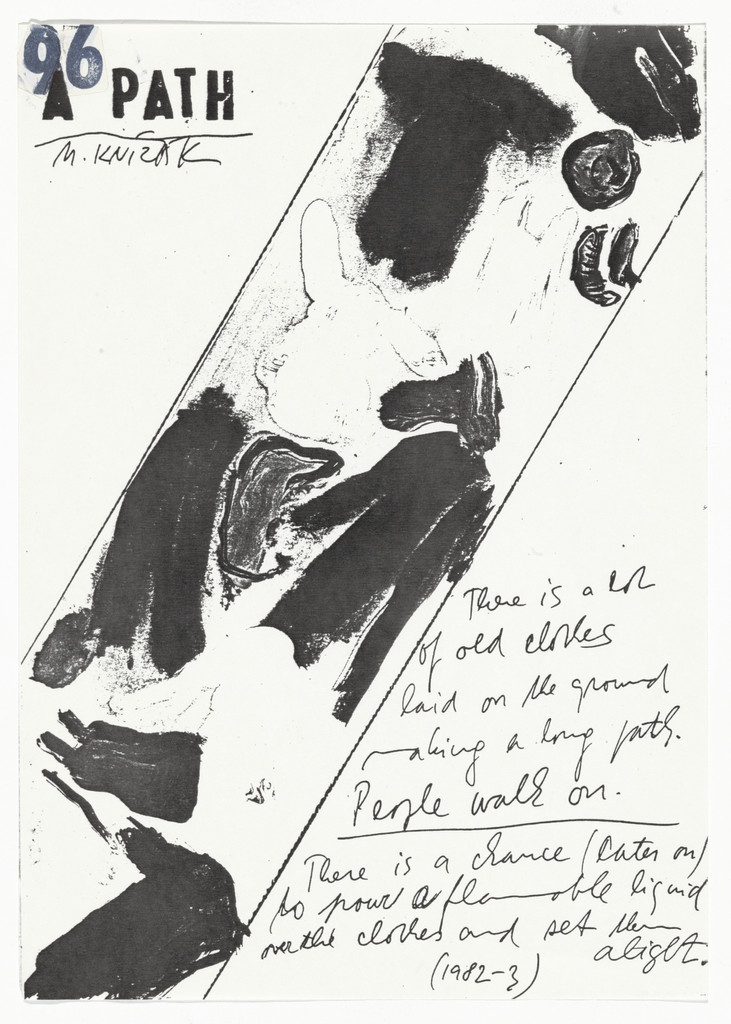 96
A PATH
M. KNÍŽÁK
There is a lot
of old clothes
laid on the ground
making a long path.
People walk on.
There is a chance (later on)
to pour a flammable liquid
over the clothes and set them
alight.
(1982-3)